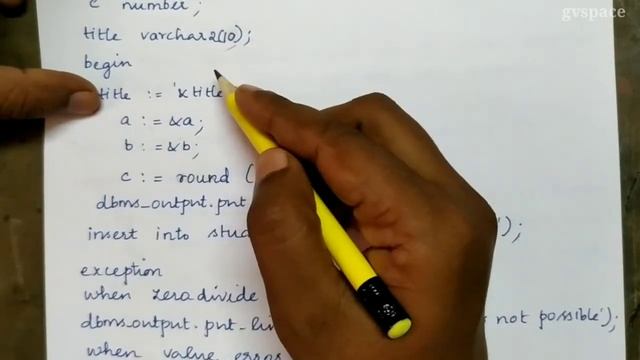 c number;
gvspace
title varchar2(10);
begin
title := '&title
a := &a;
b := &b;
c := round (
dbms_output.put
insert into stud ');
exception
when zerodivide
dbms_output.put_lin not possible');
when value_error